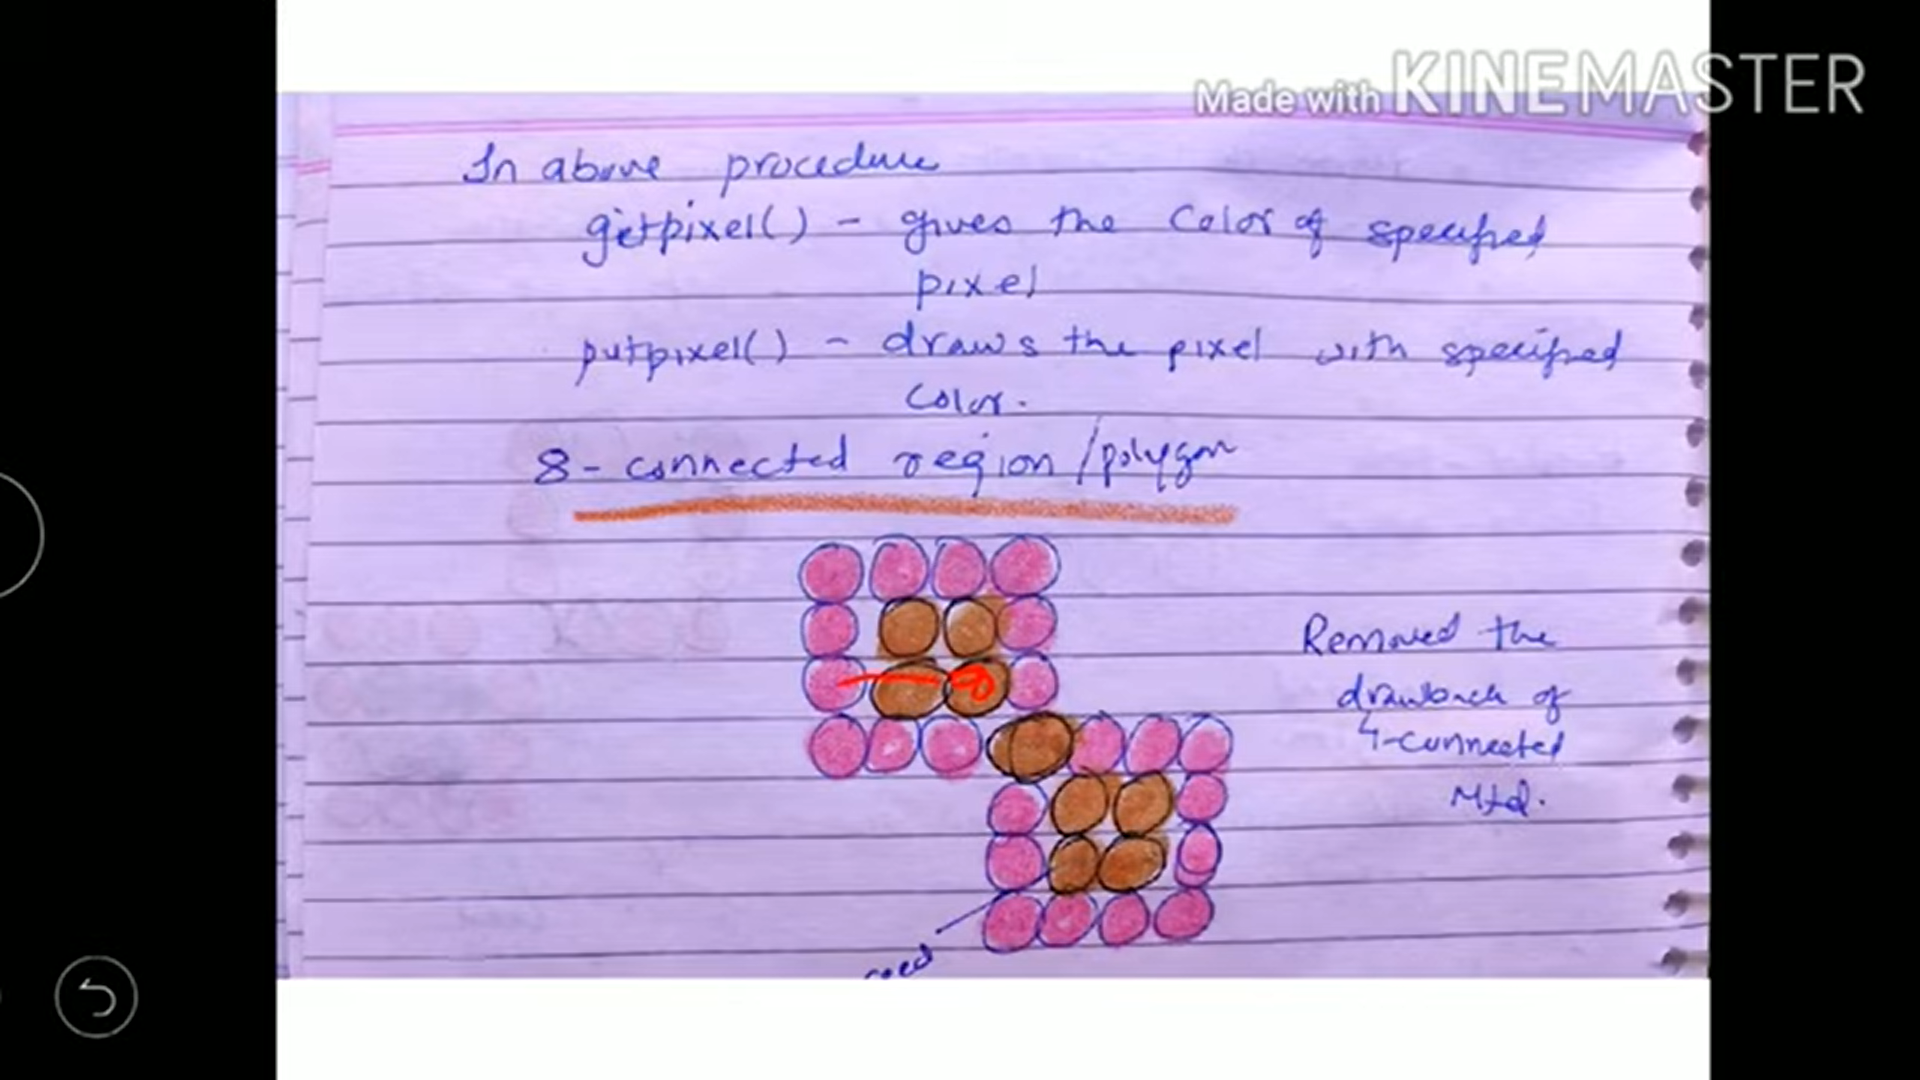 Made with KINEMASTER
In above procedure
getpixel() - gives the Color of specified
pixel
putpixel() - draws the pixel with specified
Color.
8-connected region/polygon
Removed the
drawback of
4-connected
Mtd.
seed